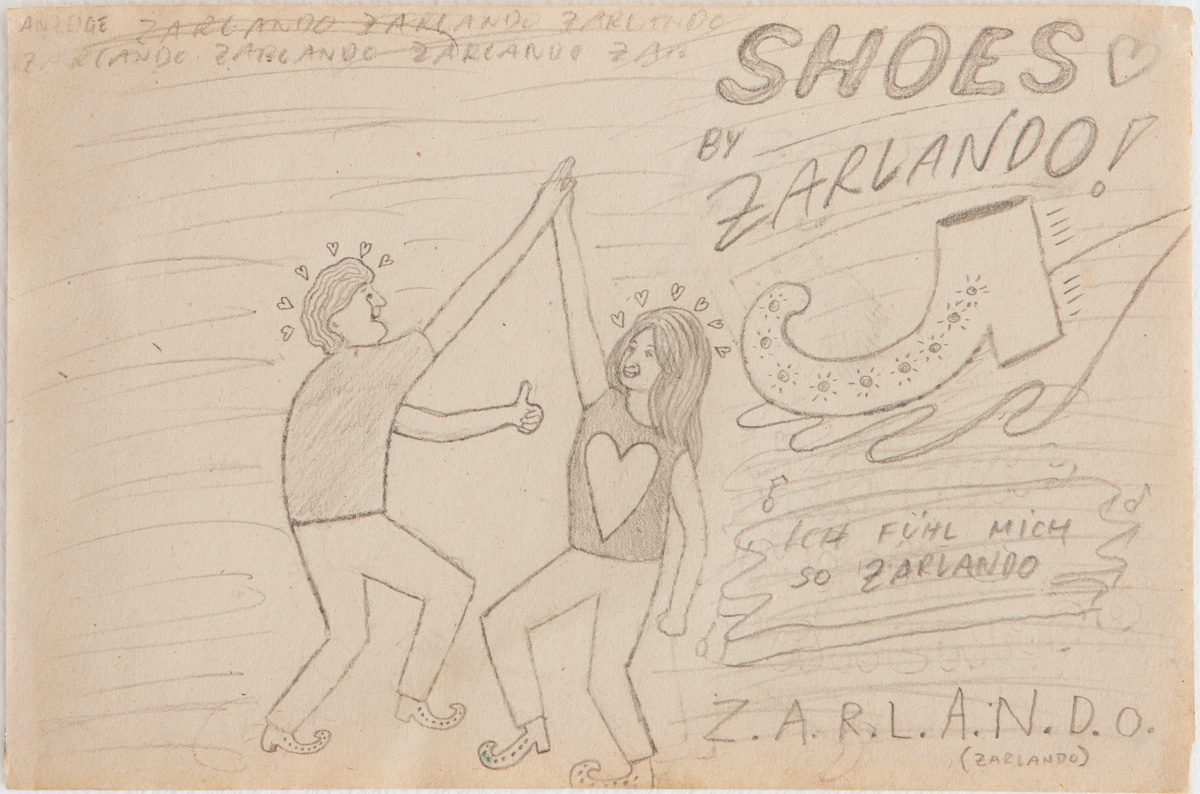 ANZEIGE ZARLANDO ZARLANDO ZARLANDO
ZARLANDO ZARLANDO ZARLANDO ZAR
SHOES
BY
ZARLANDO!
ICH FÜHL MICH
SO ZARLANDO
Z.A.R.L.A.N.D.O.
(ZARLANDO)